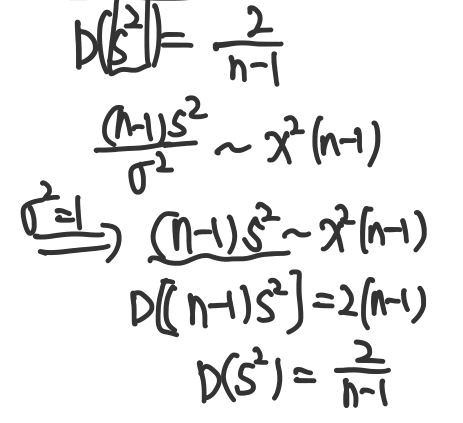 D(S²) = 2/(n-1)
(n-1)S²/σ² ~ χ²(n-1)
σ²=1 ⟹ (n-1)S² ~ χ²(n-1)
D[(n-1)S²] = 2(n-1)
D(S²) = 2/(n-1)